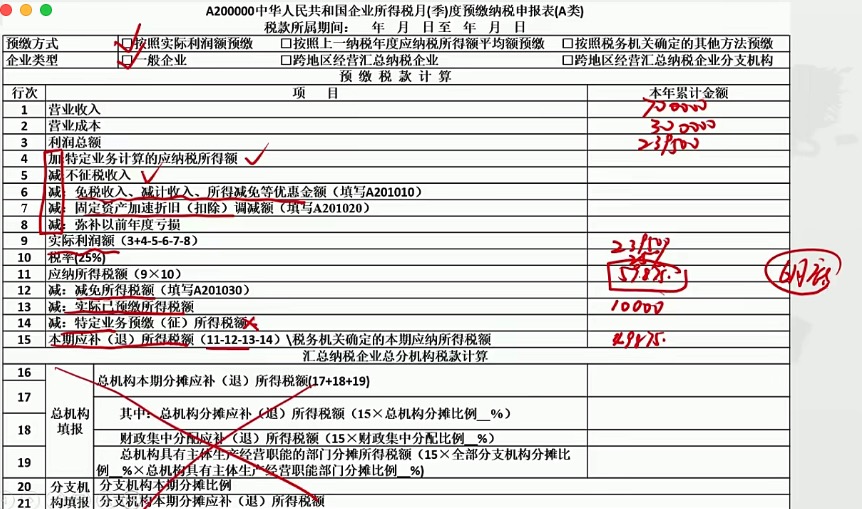 A200000中华人民共和国企业所得税月(季)度预缴纳税申报表(A类)
税款所属期间: 年 月 日至 年 月 日
预缴方式 □按照实际利润额预缴 □按照上一纳税年度应纳税所得额平均额预缴 □按照税务机关确定的其他方法预缴
企业类型 □一般企业 □跨地区经营汇总纳税企业 □跨地区经营汇总纳税企业分支机构
预缴税款计算
行次 项 目 本年累计金额
1 营业收入 700000
2 营业成本 300000
3 利润总额 239500
4 加:特定业务计算的应纳税所得额
5 减:不征税收入
6 减:免税收入、减计收入、所得减免等优惠金额(填写A201010)
7 减:固定资产加速折旧(扣除)调减额(填写A201020)
8 减:弥补以前年度亏损
9 实际利润额(3+4-5-6-7-8) 239500
10 税率(25%) 25%
11 应纳所得税额(9×10) 59875.
12 减:减免所得税额(填写A201030)
13 减:实际已预缴所得税额 10000
14 减:特定业务预缴(征)所得税额
15 本期应补(退)所得税额(11-12-13-14)\税务机关确定的本期应纳所得税额 49875.
汇总纳税企业总分机构税款计算
16 总机构本期分摊应补(退)所得税额(17+18+19)
17 其中:总机构分摊应补(退)所得税额(15×总机构分摊比例__%)
总机构填报
18 财政集中分配应补(退)所得税额(15×财政集中分配比例__%)
19 总机构具有主体生产经营职能的部门分摊所得税额(15×全部分支机构分摊比
例__%×总机构具有主体生产经营职能部门分摊比例__%)
20 分支机 分支机构本期分摊比例
21 构填报 分支机构本期分摊应补(退)所得税额